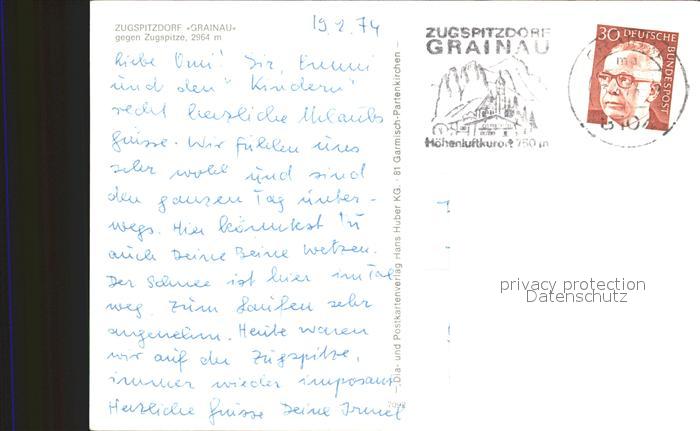 ZUGSPITZDORF »GRAINAU«
gegen Zugspitze, 2964 m
19.2.74
Liebe Omi! Dir, Emmi
und den "Kindern"
recht herzliche Urlaubs
grüsse. Wir fühlen uns
sehr wohl und sind
den ganzen Tag unter-
wegs. Hier könntest Du
auch Deine Beine wetzen.
Der Schnee ist hier im Tal
weg. Zum Laufen sehr
angenehm. Heute waren
wir auf der Zugspitze,
immer wieder imposant
Herzliche Grüsse Deine Irmel
Dia- und Postkartenverlag Hans Huber KG. · 81 Garmisch-Partenkirchen
ZUGSPITZDORF
GRAINAU
Höhenluftkurort 750 m
30 DEUTSCHE
BUNDESPOST
8104
privacy protection
Datenschutz